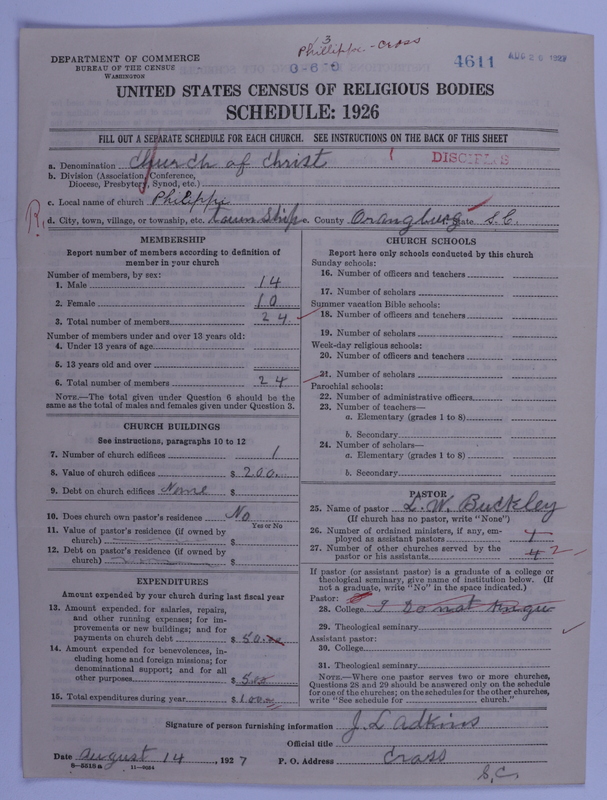 3
Phillippi - Cross
DEPARTMENT OF COMMERCE
BUREAU OF THE CENSUS
WASHINGTON
0-6-0
4611
UNITED STATES CENSUS OF RELIGIOUS BODIES
SCHEDULE: 1926
FILL OUT A SEPARATE SCHEDULE FOR EACH CHURCH. SEE INSTRUCTIONS ON THE BACK OF THIS SHEET
a. Denomination Church of Christ
DISCIPLES
b. Division (Association, Conference,
Diocese, Presbytery, Synod, etc.)
c. Local name of church Philippi
R.
d. City, town, village, or township, etc. township e. County Orangburg State S.C.
MEMBERSHIP
Report number of members according to definition of
member in your church
Number of members, by sex:
1. Male 14
2. Female 10
3. Total number of members 24
Number of members under and over 13 years old:
4. Under 13 years of age
5. 13 years old and over
6. Total number of members 24
NOTE.—The total given under Question 6 should be the
same as the total of males and females given under Question 3.
CHURCH BUILDINGS
See instructions, paragraphs 10 to 12
7. Number of church edifices 1
8. Value of church edifices $ 200
9. Debt on church edifices None $
10. Does church own pastor's residence No
Yes or No
11. Value of pastor's residence (if owned by
church) $
12. Debt on pastor's residence (if owned by
church) $
EXPENDITURES
Amount expended by your church during last fiscal year
13. Amount expended for salaries, repairs,
and other running expenses; for im-
provements or new buildings; and for
payments on church debt $ 50.00
14. Amount expended for benevolences, in-
cluding home and foreign missions; for
denominational support; and for all
other purposes $ 5.00
15. Total expenditures during year $
CHURCH SCHOOLS
Report here only schools conducted by this church
Sunday schools:
16. Number of officers and teachers
17. Number of scholars
Summer vacation Bible schools:
18. Number of officers and teachers
19. Number of scholars
Week-day religious schools:
20. Number of officers and teachers
21. Number of scholars
Parochial schools:
22. Number of administrative officers
23. Number of teachers—
a. Elementary (grades 1 to 8)
b. Secondary
24. Number of scholars—
a. Elementary (grades 1 to 8)
b. Secondary
PASTOR
25. Name of pastor L. W. Buckley
(If church has no pastor, write "None")
26. Number of ordained ministers, if any, em-
ployed as assistant pastors 1
27. Number of other churches served by the
pastor or his assistants 4 2
If pastor (or assistant pastor) is a graduate of a college or
theological seminary, give name of institution below. (If
not a graduate, write "No" in the space indicated.)
Pastor:
28. College I do not know
29. Theological seminary
Assistant pastor:
30. College
31. Theological seminary
NOTE.—Where one pastor serves two or more churches,
Questions 28 and 29 should be answered only on the schedule
for one of the churches; on the schedules for the other churches,
write "See schedule for church."
Signature of person furnishing information J. L Adkins
Official title
Date August 14, 1927 P. O. Address Cross
8-5518a 11-9034
S.C.